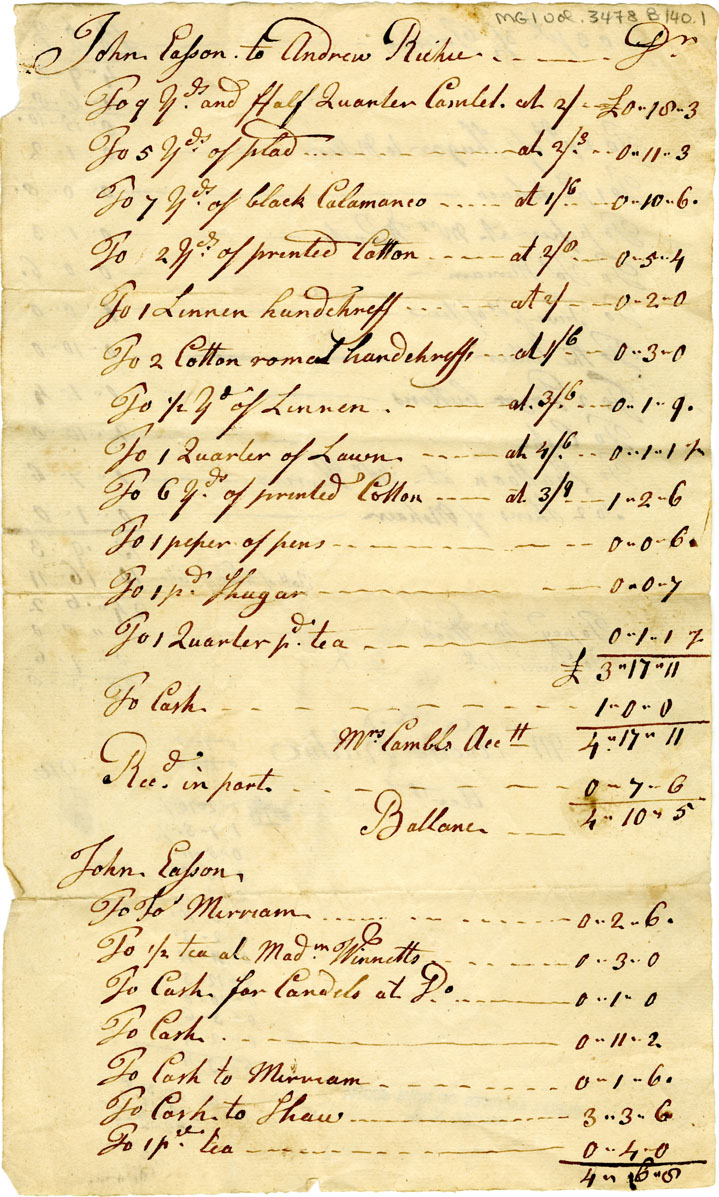 MG1 Vol. 3478 B140.1
John Easson to Andrew Richie Dr
To 9 Yds and Half Quarter Camlet at 2/ £0-18-3
To 5 Yds of plad at 2/3 0-11-3
To 7 Yds of black Calamanco at 1/6 0-10-6
To 2 Yds of printed Cotton at 2/8 0-5-4
To 1 Linnen handchreff at 2/ 0-2-0
To 2 Cotton romal handchreffs at 1/6 0-3-0
To 1/2 Yd of Linnen at 3/6 0-1-9
To 1 Quarter of Lawn at 4/6 0-1-1 1/2
To 6 Yds of printed Cotton at 3/9 1-2-6
To 1 peper of pens 0-0-6
To 1 pd Shugar 0-0-7
To 1 Quarter pd tea 0-1-1 1/2
£ 3-17-11
To Cash 1-0-0
Mrs Cambls Acctt 4-17-11
Recd in part 0-7-6
Ballanc 4-10-5
John Easson
To Jos Merriam 0-2-6
To 1/2 tea at Madm Winnetts 0-3-0
To Cash for Candels at Do 0-1-0
To Cash 0-11-2
To Cash to Merriam 0-1-6
To Cash to Shaw 3-3-6
To 1 pd tea 0-4-0
4-6-8